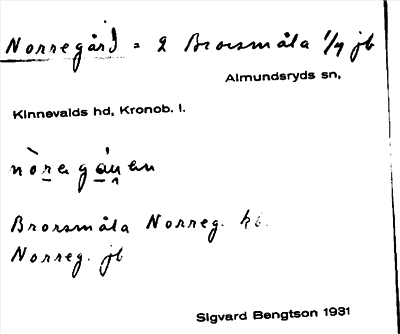 Norregård = 2 Brorsmåla 1/4 jb
Almundsryds sn,
Kinnevalds hd, Kronob. l.
nòregån en
Brorsmåla Norreg. kb.
Norreg. jb
Sigvard Bengtson 1931